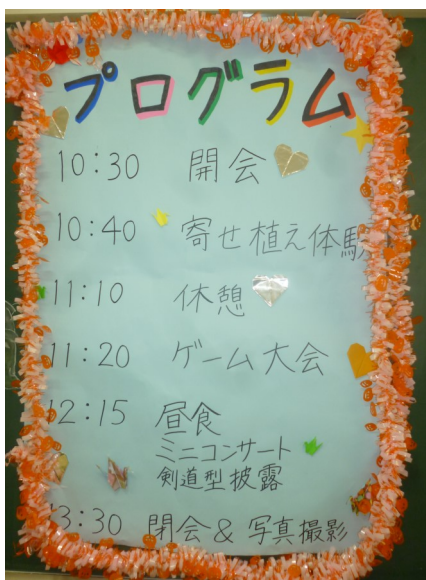 プログラム
10:30 開会
10:40 寄せ植え体験
11:10 休憩
11:20 ゲーム大会
12:15 昼食
ミニコンサート
剣道型披露
13:30 閉会 & 写真撮影